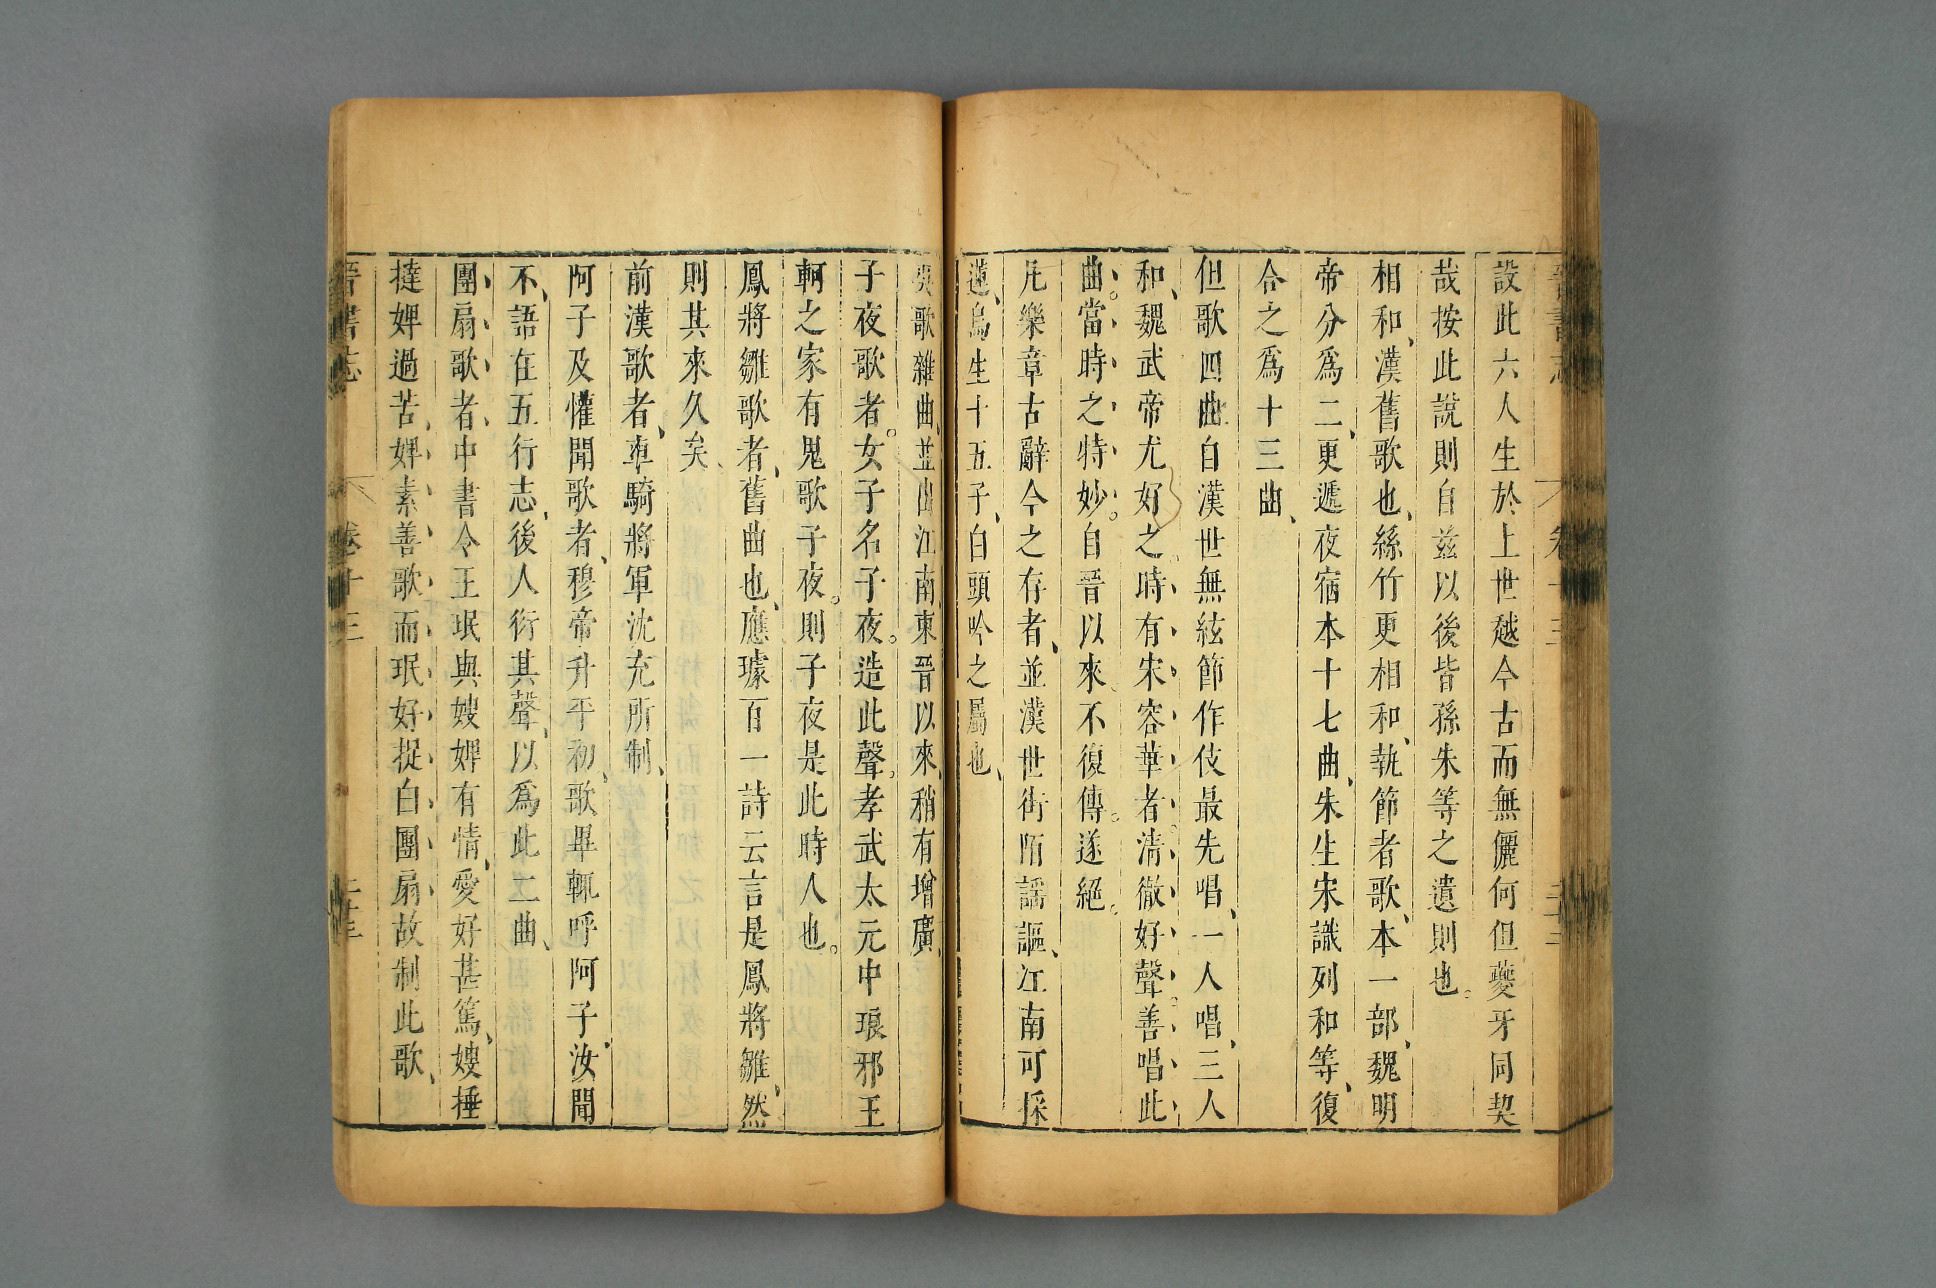 設此六人生於上世越今古而無儷何但夔牙同契
哉按此說則自茲以後皆孫朱等之遺則也。
相和、漢舊歌也、絲竹更相和、執節者歌、本一部、魏明
帝分爲二、更遞夜宿本十七曲、朱生宋識列和等、復
合之爲十三曲、
但歌四曲自漢世無絃節作伎最先唱、一人唱、三人
和、魏武帝尤好之。時有宋容華者清徹好聲。善唱此
曲。當時之特妙。自晉以來。不復傳。遂絕。
凡樂章古辭今之存者、並漢世街陌謡謳、江南可採
蓮、烏生十五子、白頭吟之屬也、
吳歌雜曲、並出江南、東晉以來、稍有增廣、
子夜歌者。女子名子夜。造此聲。孝武太元中琅邪王
軻之家有鬼歌子夜。則子夜是此時人也。
鳳將雛歌者、舊曲也、應璩百一詩云言是鳳將雛、然
則其來久矣、
前漢歌者、車騎將軍沈充所制、
阿子及懽聞歌者、穆帝升平初、歌畢輒呼阿子、汝聞
不、語在五行志、後人衍其聲、以爲此二曲、
團扇歌者、中書令王珉與嫂婢有情、愛好甚篤、嫂捶
撻婢過苦、婢素善歌而珉好捉白團扇故制此歌、
晉書志
卷十三
二十三